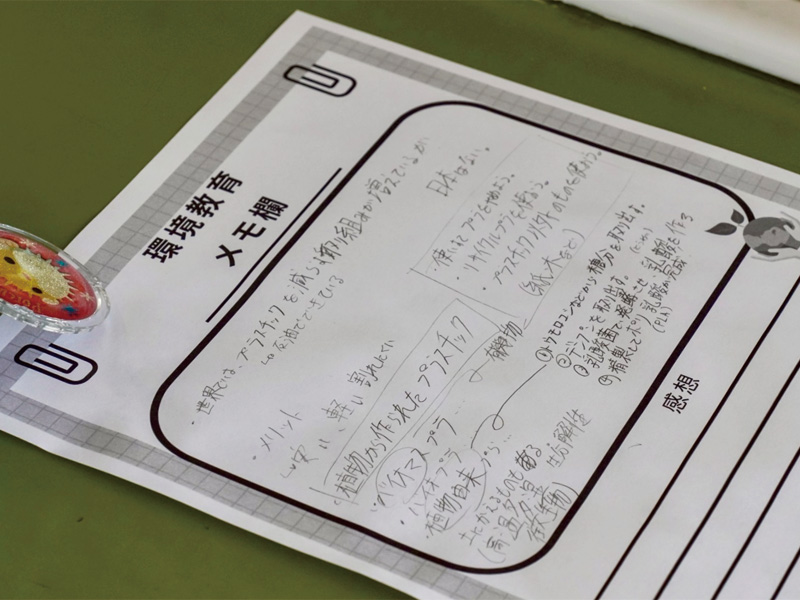 環境教育
メモ欄
・世界では、プラスチックを減らす取り組みが増えている
日本はない。
↳石油でできている
・使いすてプラをやめよう。
・リサイクルプラを使おう。
・プラスチック以外のものを使おう。
(紙、木など)
・メリット
↳安い、軽い、割れにくい
植物から作られたプラスチック
・バイオマスプラ
・バイオプラ
・植物由来プラ
有機物
①トウモロコシなどから糖分を取り出す。
②デンプンを取り出す。
③乳酸菌で発酵させ乳酸を作る
④精製してポリ乳酸が完成
(PLA)
土にかえるものもある
生分解性
(高温多湿
微生物)
感想